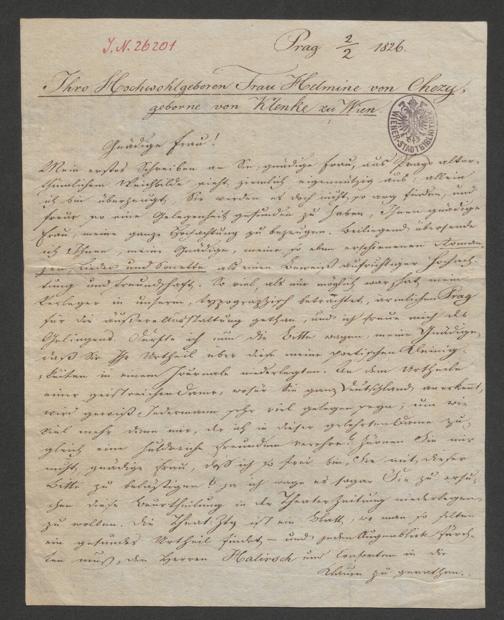 I.N. 26201
Prag 2/2 1826.
Ihro Hochwohlgeboren Frau Helmine von Chezy,
geborne von Klenke zu Wien.
WIENER STADTBIBLIOTHEK
Gnädige Frau!
Mein erstes Schreiben an Sie, gnädige Frau, aus Prags alter-
thümlichem Weichbilde, sieht ziemlich eigennützig aus, allein
ich bin überzeugt, Sie werden es doch nicht so arg finden, und
freue so eine Gelegenheit gefunden zu haben, Ihnen gnädige
Frau, meine ganze Hochachtung zu bezeugen. Beiliegend übersende
ich Ihnen, meine Gnädige, meine so eben erschienenen Roman-
zen, Lieder und Sonette als einen Beweis aufrichtiger Hochach-
tung und Freundschaft. So viel, als nur möglich war, hat mein
Verleger in unserm, typographisch betrachtet, ärmlichen Prag
für die äußere Ausstattung gethan, und ich freue mich des
Gelingens. Dürfte ich nun die Bitte wagen, meine Gnädige,
daß Sie Ihr Urtheil über diese meine poetischen Kleinig-
keiten in einem Journale niederlegten. An dem Urtheile
einer geistreichen Dame, wofür Sie ganz Deutschland anerkennt,
wird gewiß Jedermann sehr viel gelegen seyn; um wie
viel mehr denn mir, da ich in dieser gelehrten Dame zu-
gleich eine huldreiche Freundinn verehre. Zürnen Sie mir
nicht, gnädige Frau, daß ich so frei bin, Sie mit dieser
Bitte zu belästigen; ja ich wage es sogar Sie zu ersu-
chen diese Beurtheilung in der Theaterzeitung niederlegen
zu wollen. Die Theat. Ztg ist ein Blatt, wo man so selten
ein gesundes Urtheil findet, – und jeden Augenblick fürch-
ten muß, den Herren Halirsch und Consorten in die
Klauen zu gerathen.